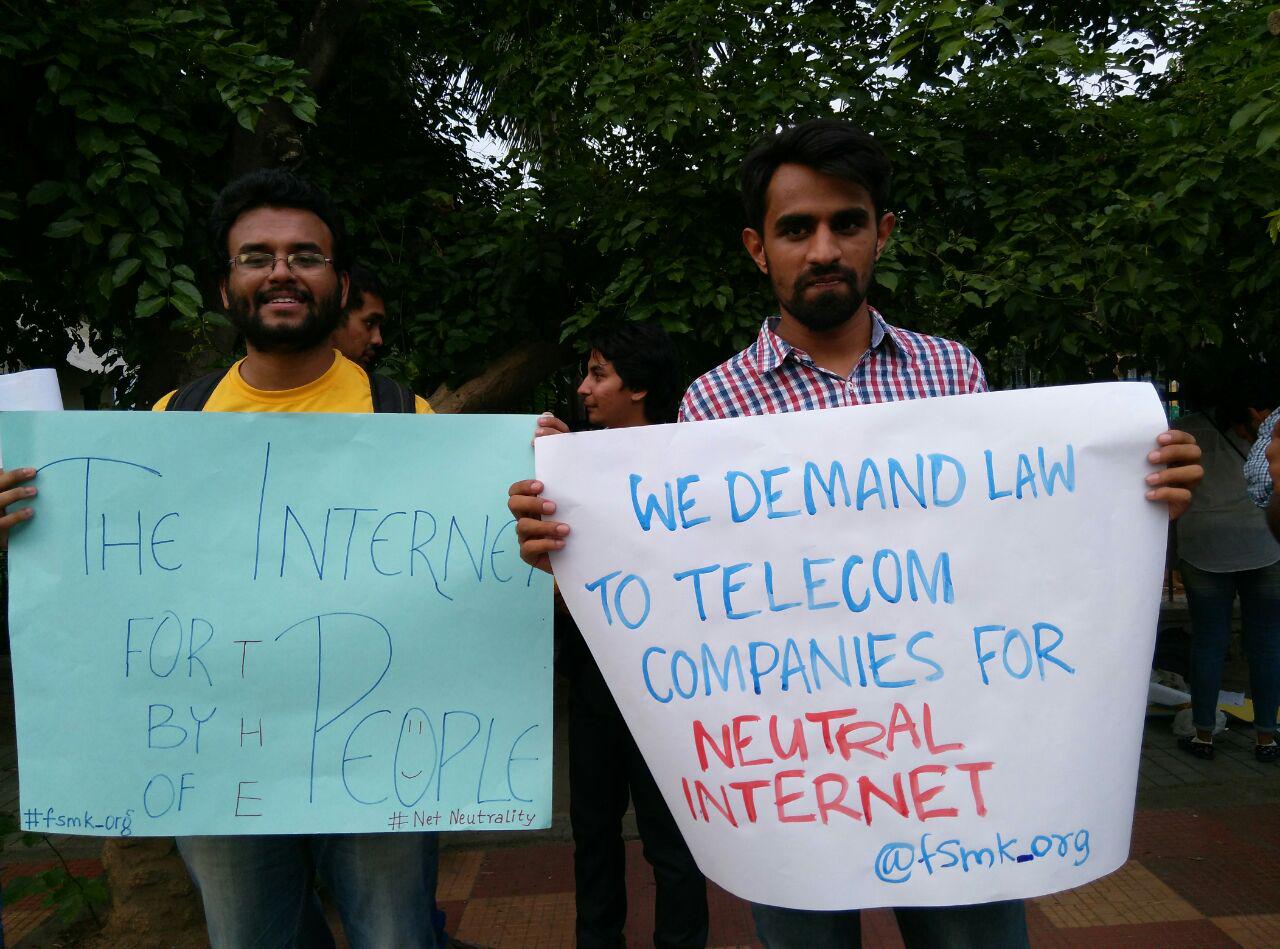 THE INTERNET
FOR THE PEOPLE
BY
OF
#fsmk_org
#Net Neutrality
WE DEMAND LAW
TO TELECOM
COMPANIES FOR
NEUTRAL
INTERNET
@fsmk_org